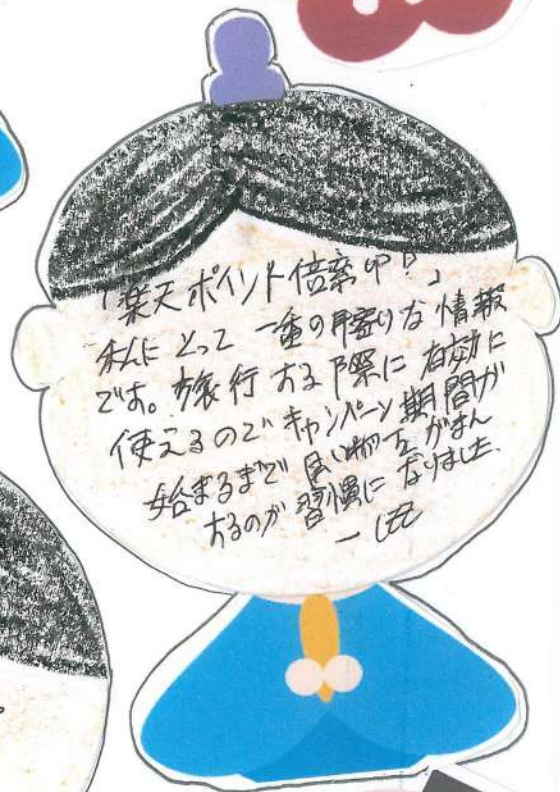 「楽天ポイント倍率UP!」
私にとって一番の耳寄りな情報
です。旅行する際に有効に
使えるのでキャンペーン期間が
始まるまで買い物をがまん
するのが習慣になりました。